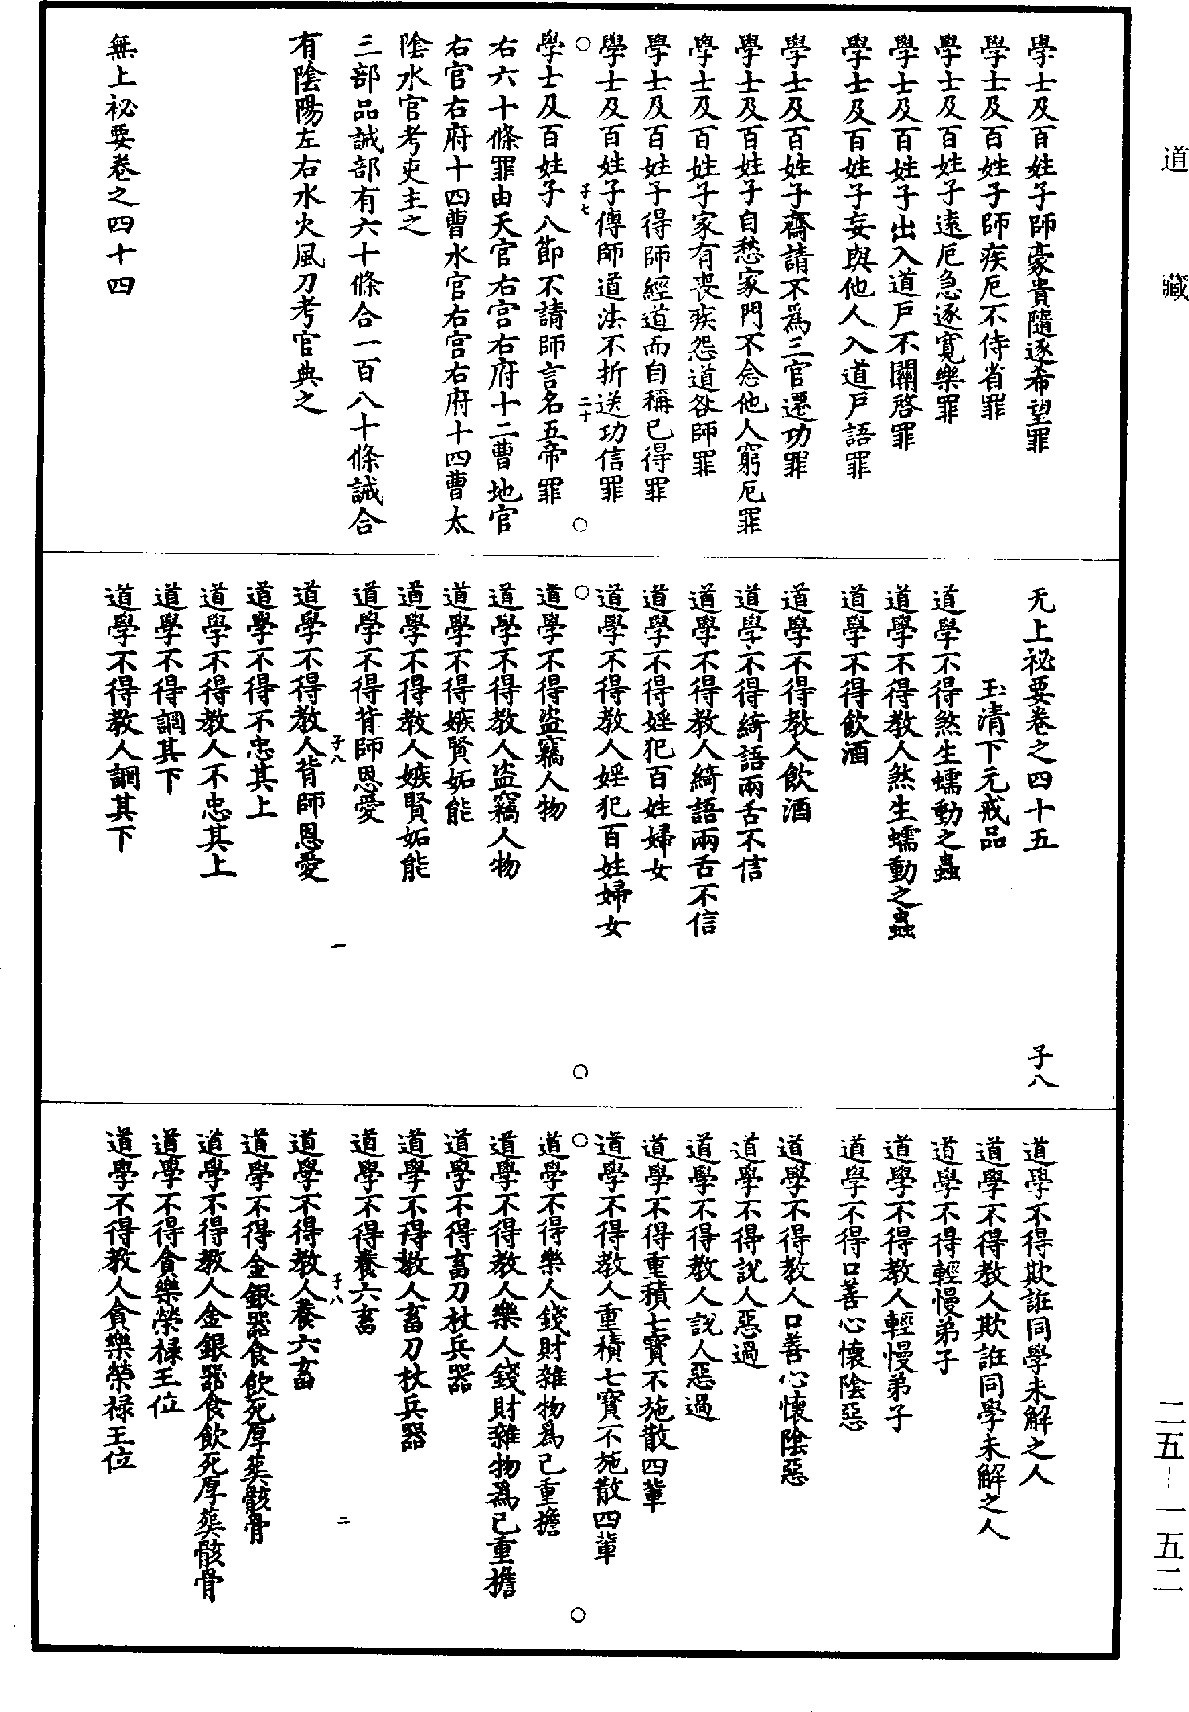 道藏
學士及百姓子師豪貴隨逐希望罪
學士及百姓子師疾厄不侍省罪
學士及百姓子遠厄急逐寬樂罪
學士及百姓子出入道戶不關啓罪
學士及百姓子妄與他人入道戶語罪
學士及百姓子齋請不爲三官遷功罪
學士及百姓子自愁家門不念他人窮厄罪
學士及百姓子家有喪疾怨道咎師罪
學士及百姓子得師經道而自稱已得罪
學士及百姓子傳師道法不折送功信罪
子七
二十
學士及百姓子八節不請師言名五帝罪
右六十條罪由天官右宮右府十二曹地官
右官右府十四曹水官右宮右府十四曹太
陰水官考吏主之
三部品誡部有六十條合一百八十條誡合
有陰陽左右水火風刀考官典之
無上祕要卷之四十四
无上祕要卷之四十五
子八
玉清下元戒品
道學不得煞生蠕動之蟲
道學不得教人煞生蠕動之蟲
道學不得飲酒
道學不得教人飲酒
道學不得綺語兩舌不信
道學不得教人綺語兩舌不信
道學不得婬犯百姓婦女
道學不得教人婬犯百姓婦女
道學不得盜竊人物
道學不得教人盜竊人物
道學不得嫉賢妬能
道學不得教人嫉賢妬能
道學不得背師恩愛
子八
一
道學不得教人背師恩愛
道學不得不忠其上
道學不得教人不忠其上
道學不得調其下
道學不得教人調其下
道學不得欺誑同學未解之人
道學不得教人欺誑同學未解之人
道學不得輕慢弟子
道學不得教人輕慢弟子
道學不得口善心懷陰惡
道學不得教人口善心懷陰惡
道學不得說人惡過
道學不得教人說人惡過
道學不得重積七寶不施散四輩
道學不得教人重積七寶不施散四輩
道學不得樂人錢財雜物爲己重擔
道學不得教人樂人錢財雜物爲己重擔
道學不得畜刀杖兵器
道學不得教人畜刀杖兵器
道學不得養六畜
子八
二
道學不得教人養六畜
道學不得金銀器食飲死厚葬骸骨
道學不得教人金銀器食飲死厚葬骸骨
道學不得貪樂榮祿王位
道學不得教人貪樂榮祿王位
二五-一五二